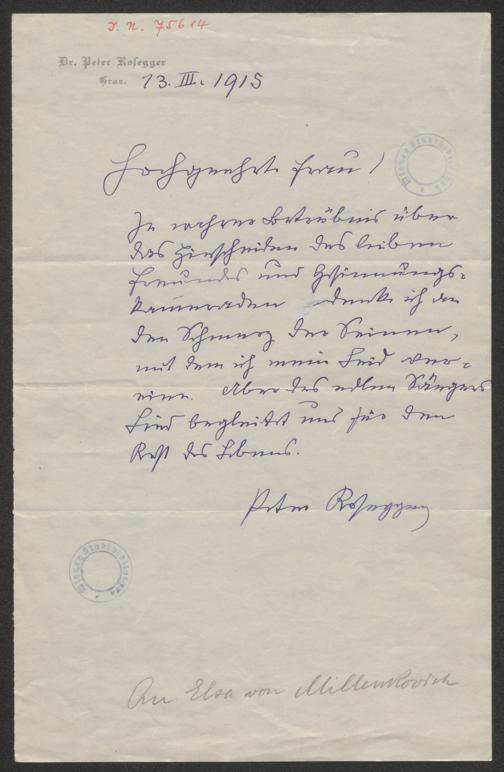 I. N. 75614
Dr. Peter Rosegger
Graz. 13. III. 1915
Hochgeehrte Frau!
In wahrer Betrübnis über
das Hinscheiden des lieben
Freundes und Gesinnungs-
kameraden denke ich an
den Schmerz der Seinen,
mit dem ich mein Leid ver-
eine. Aber des edlen Sängers
Lied begleitet uns für den
Rest des Lebens.
Peter Rosegger
An Elsa von Millenkovich